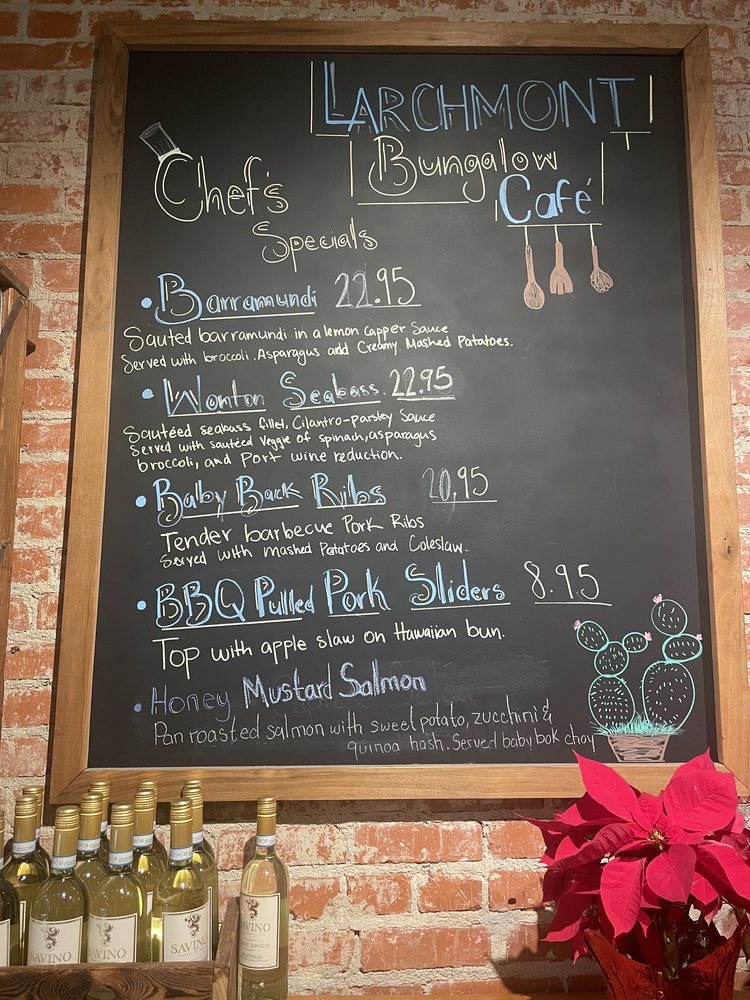 LARCHMONT
Bungalow
Café
Chef's
Specials
• Barramundi 22.95
Sauted barramundi in a lemon capper Sauce
Served with broccoli. Asparagus and Creamy Mashed Potatoes.
• Wonton Seabass. 22.95
Sautéed seabass fillet, Cilantro-parsley Sauce
Served with sautéed veggie of spinach, asparagus
broccoli, and Port wine reduction.
• Baby Back Ribs 20.95
Tender barbecue Pork Ribs
Served with mashed Potatoes and Coleslaw.
• BBQ Pulled Pork Sliders 8.95
Top with apple slaw on Hawaiian bun.
• Honey Mustard Salmon
Pan roasted salmon with sweet potato, zucchini &
quinoa hash. Served baby bok choy
SAVINO
SAVINO
SAVINO
SAVINO
PINOT GRIGIO